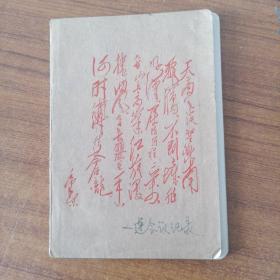 天高云淡望断南
飞雁不到长城非
好汉屈指行程二万
六盘山上高峰红旗漫
卷西风今日长缨在手
何时缚住苍龙
毛泽东
一连会议记录